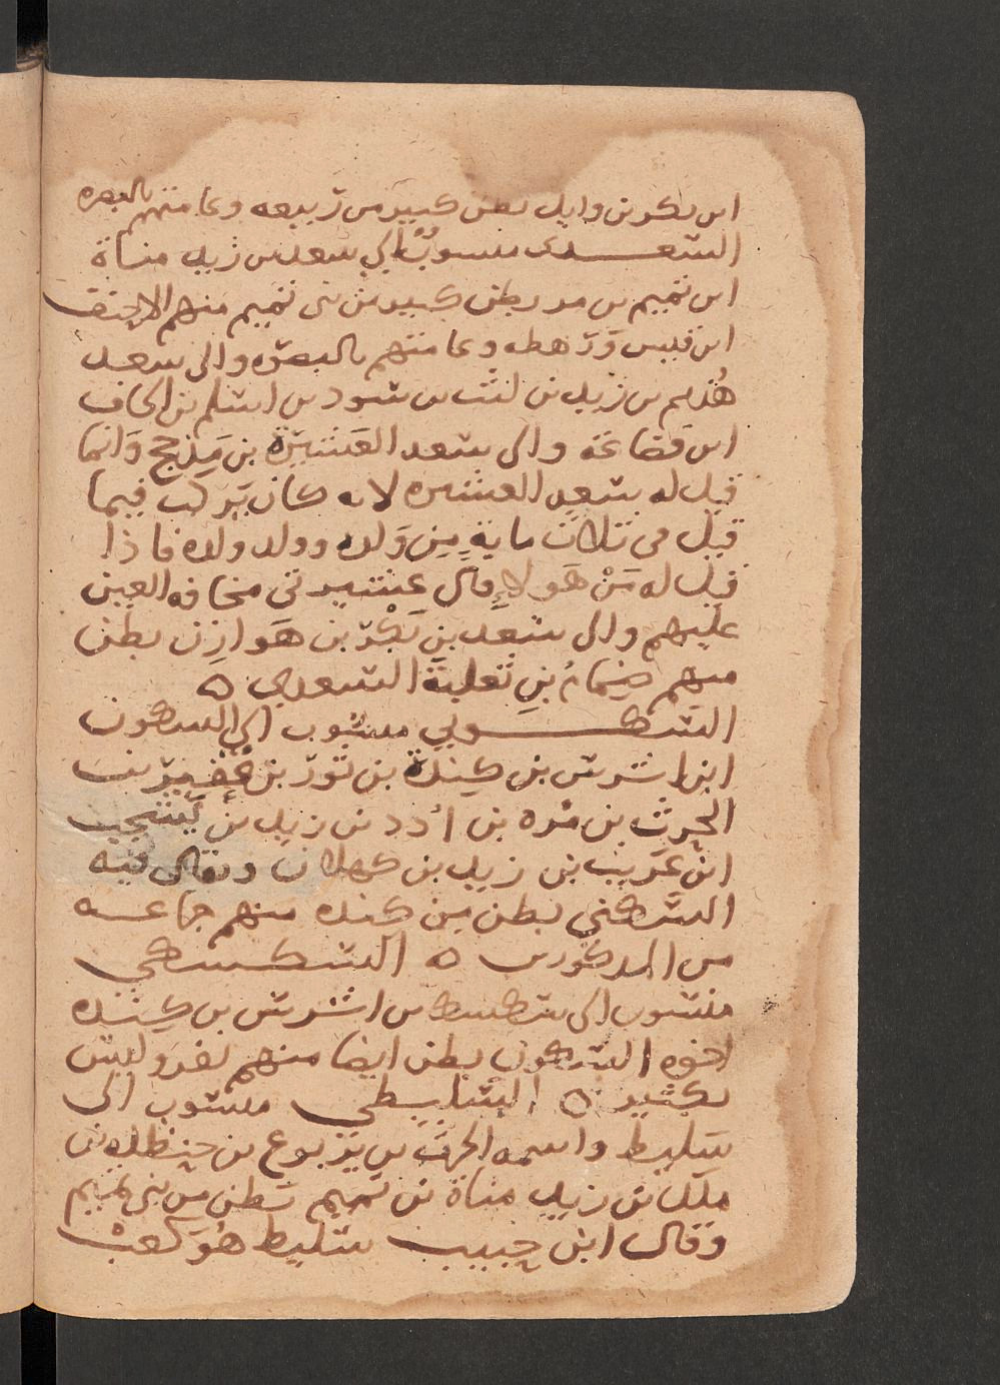 ابن بكر بن وايل بطن كبير من ربيعه وعامتهم بالبصره
السعدى منسوب الى سعد بن زيد مناة
ابن تميم بن مر بطن كبير من بنى تميم منهم الاحنف
ابن قيس ورهطه وعامتهم بالبصره والى سعد
هُذيم بن زيد بن ليث بن سود بن اسلم بن الحاف
ابن قضاعه والى سعد العَشِيرَة بن مَذحج وَانما
قيل له سعد العشيره لانه كان يَركب فيما
قيل في ثلاث ماية مِن وَلده وولد ولده فاذا
قيل له مَنْ هَولاءِ قال عشيرتى مخافه العين
عليهم والى سَعد بنِ بَكْر بن هَوازِن بطن
منهم ضِمَامُ بنِ ثعلبَة السعدي ه
السكوني منسوب الى السكون
ابن اشرس بن كِندَة بن ثور بن عُفَير بن
الحرث بن مُره بن أدد بن زيد بن يَشجب
ابن عَريب بن زيد بن كهلان ويقال فيه
السكني بطن من كنده منهم جماعه
من المذكورين ه السكسكي
منسوب الى سكسك بن اشرس بن كِنده
اخوه السكون بطن ايضا منهم نفر وليس
بكثير ه السليطى منسوب الى
سَليط واسمه الحرث بن يَربوع بن حنظله بن
ملك بن زيد مناة بن تميم بَطن من بنى تميم
وقال ابن حبيب سَليط هُوَ كعبْ